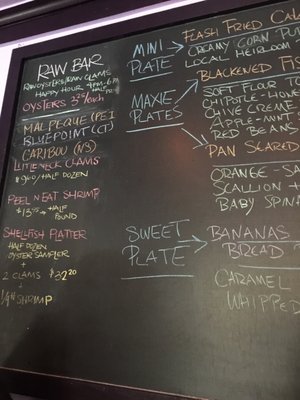 RAW BAR
RAW OYSTERS/RAW CLAMS
HAPPY HOUR 4PM-6PM
OYSTERS 3.25/each
MALPEQUE (PEI
BLUEPOINT (CT)
CARIBOU (NS)
LITTLENECK CLAMS
/HALF DOZEN
PEEL N EAT SHRIMP
HALF
POUND
SHELLFISH PLATTER
HALF DOZEN
OYSTER SAMPLER
+
2 CLAMS
+
1/4# SHRIMP
MINI
PLATE
FLASH FRIED
CREAMY CORN
LOCAL HEIRLOOM
MAXIE
PLATES
BLACKENED
SOFT FLOUR
CHIPOTLE-
CHIVE CREME
APPLE-MINT
RED BEANS
PAN SEARED
ORANGE-
SCALLION +
BABY
SWEET
PLATE
BANANAS
BREAD
CARAMEL
WHIPPED